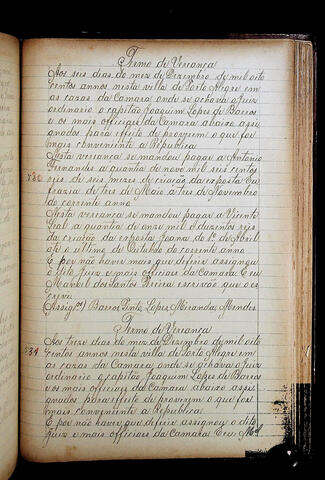 Termo de Vereança
Aos seis dias do mez de Dezembro de mil oito
centos annos nesta villa de Porto Alegre em
as cazas da Camara onde se achava o Juiz
ordinario o capitão Joaquim Lopes de Barros
e os mais officiaes da Camara abaixo assi-
gnados para effeito de proverem o que for
mais conveniente a Republica
Nesta vereança se mandou pagar a Antonio
Fernandes a quantia de nove mil seis centos
reis de seis mezes de criação da exposta Eu
frazia de tres de Maio a tres de Novembro
do corrente anno
Nesta vereança se mandou pagar a Vicente
Leal a quantia de onze mil e duzentos reis
da criação da exposta Joana do 1º de Abril
até o ultimo de Outubro do corrente anno
E por não haver mais que deferir assignou
o dito Juiz e mais officiaes da Camara E eu
Manoel dos Santos Pereira escrivão que o es
crevi
Assig.ᵒˢ) Barros, Pinto, Lopes, Miranda, Mendes
Termo de Vereança
Aos treze dias do mez de Dezembro de mil oito
centos annos nesta villa de Porto Alegre em
as cazas da Camara, onde se achava o Juiz
ordinario o capitão Joaquim Lopes de Barros
e os mais officiaes da Camara abaixo assi-
gnados para effeito de proverem o que for
mais conveniente a Republica
E por não haver mais que deferir assignou o dito
Juiz e mais officiaes da Camara E eu M.ᵉˡ